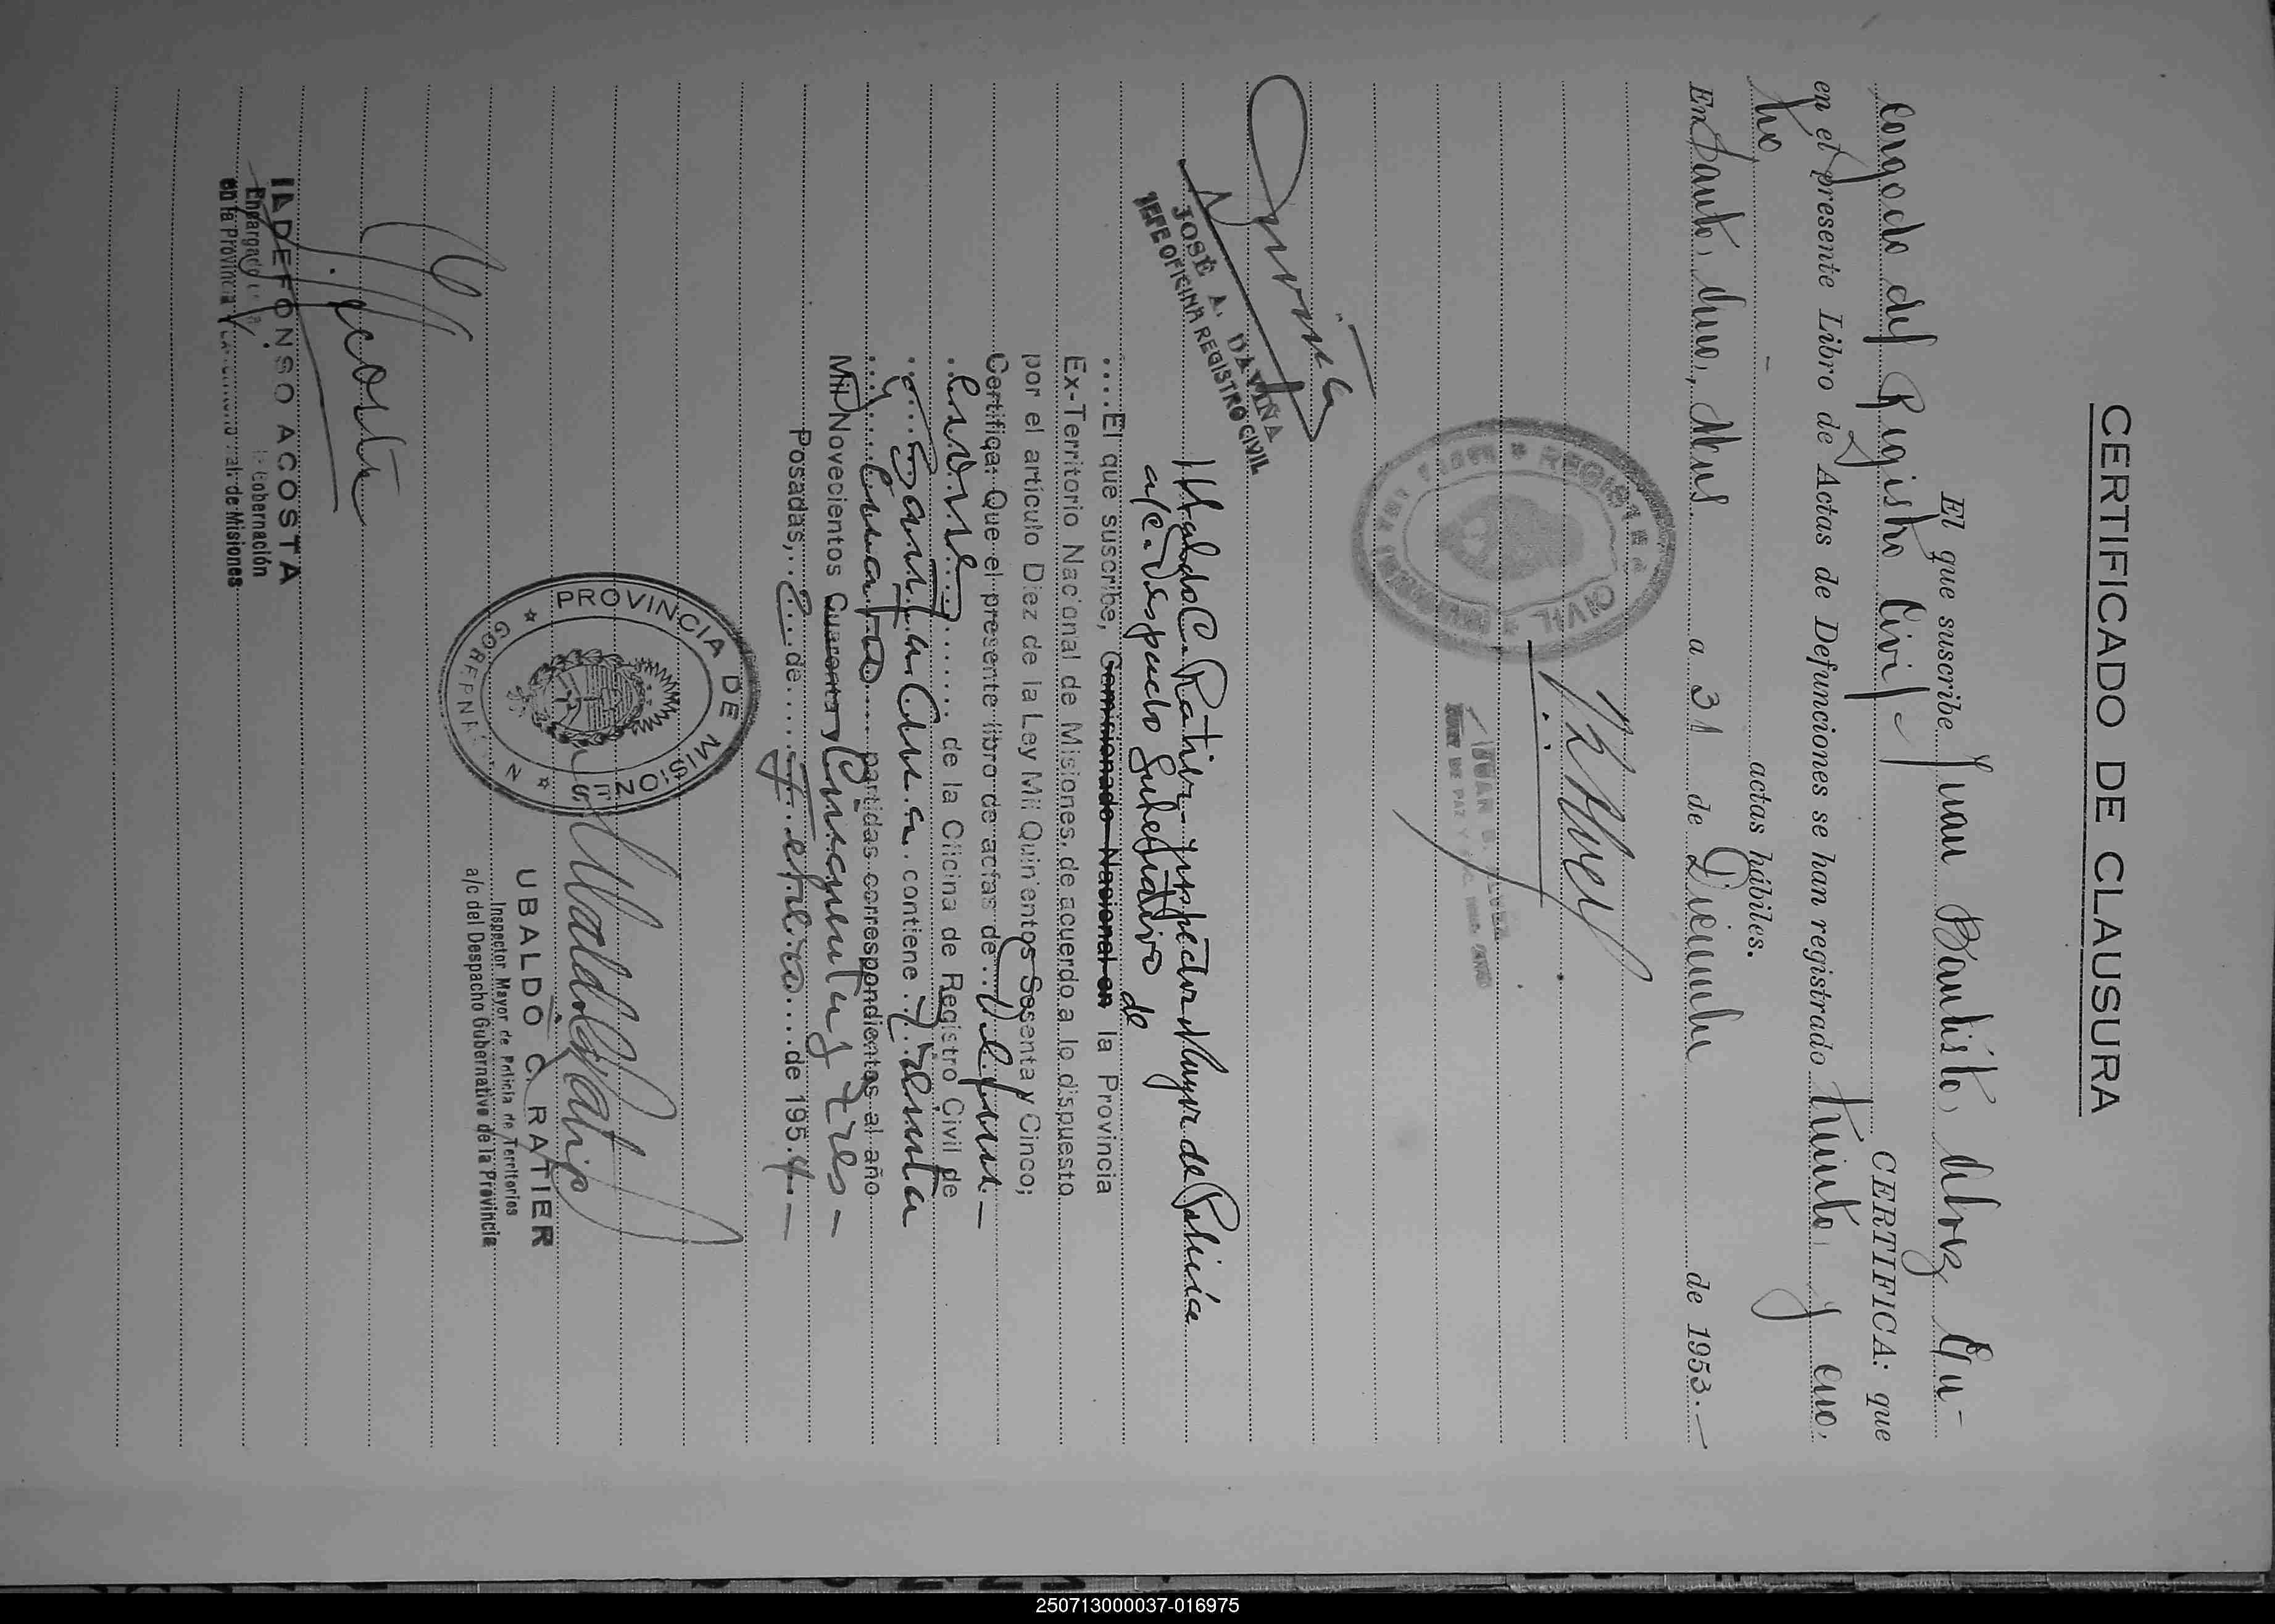 CERTIFICADO DE CLAUSURA
El que suscribe Juan Bautista En-
cargado del Registro Civil CERTIFICA: que
en el presente Libro de Actas de Defunciones se han registrado treinta y cuo,
tro actas hábiles.
En Santa Ana, Mnes a 31 de Diciembre de 1953.-
REGISTRO CIVIL
JUAN B.
JUEZ DE PAZ Y
JOSÉ A. DAVIÑA
JEFE OFICINA REGISTRO CIVIL
Ubaldo C. Ratier, inspector Mayor de Policía
a/c. Despacho Gubernativo de
....El que suscribe, Comisionado Nacional en la Provincia
Ex-Territorio Nacional de Misiones, de acuerdo a lo dispuesto
por el artículo Diez de la Ley Mil Quinientos Sesenta y Cinco;
Certifica: Que el presente libro de actas de Defun-
ciones de la Oficina de Registro Civil de
Santa Ana contiene Treinta
y Cuatro partidas correspondientes al año
Mil Novecientos Cuarenta y Cincuenta y tres-
Posadas, 2 de Febrero de 1954.-
PROVINCIA DE MISIONES
GOBERNACION
UBALDO C. RATIER
Inspector Mayor de Policía de Territorios
a/c del Despacho Gubernativo de la Provincia
I. Acosta
ILDEFONSO ACOSTA
Encargado Gobernación
en la Provincia de Misiones
250713000037-016975